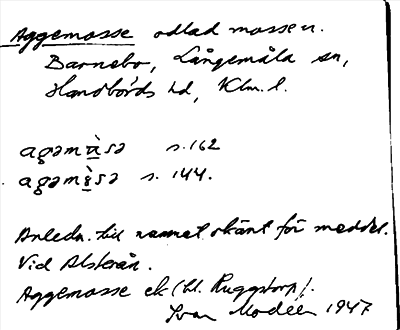 Aggemosse odlad mosse u.
Barnebo, Långemåla sn,
Handbörds hd, Klm. l.
agəmàsə s. 162
agəmàsə s. 144.
Anledn. till namnet okänt för meddel.
Vid Alsterån.
Aggemosse ek (hd. Ruggstorp).
Ivar Modéer 1947